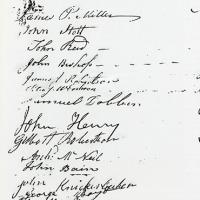 James P. Miller
John Stott
John Reid
John Bishop
James Robertson
Henry Woodman
Samuel Tobbin
John Henry
Gilbert Robertson
Archd McNeil
John Bain
John Knickerbacker
George